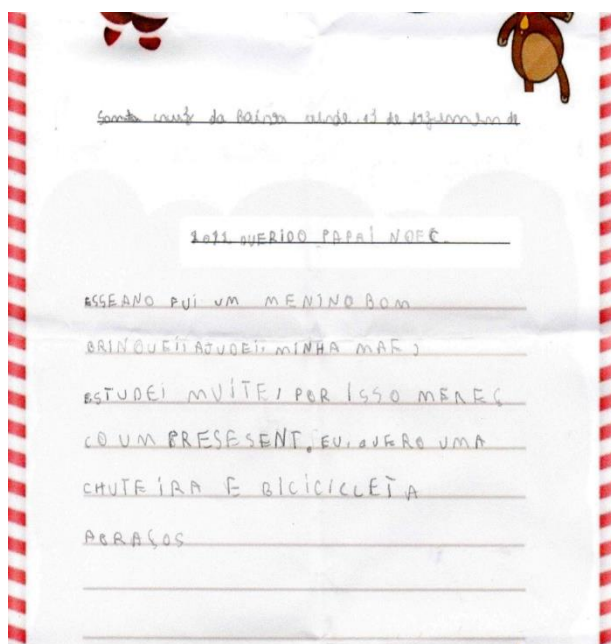 Santa cruz da Baixa
2022 QUERIDO PAPAI NOEL.
ESSE ANO FUI UM MENINO BOM
BRINQUEI, AJUDEI, MINHA MAE,
ESTUDEI MUITE, POR ISSO MEREÇ
CO UM PRESESENT. EU, QUERO UMA
CHUTEIRA E BICICICLETA
ABRAÇOS